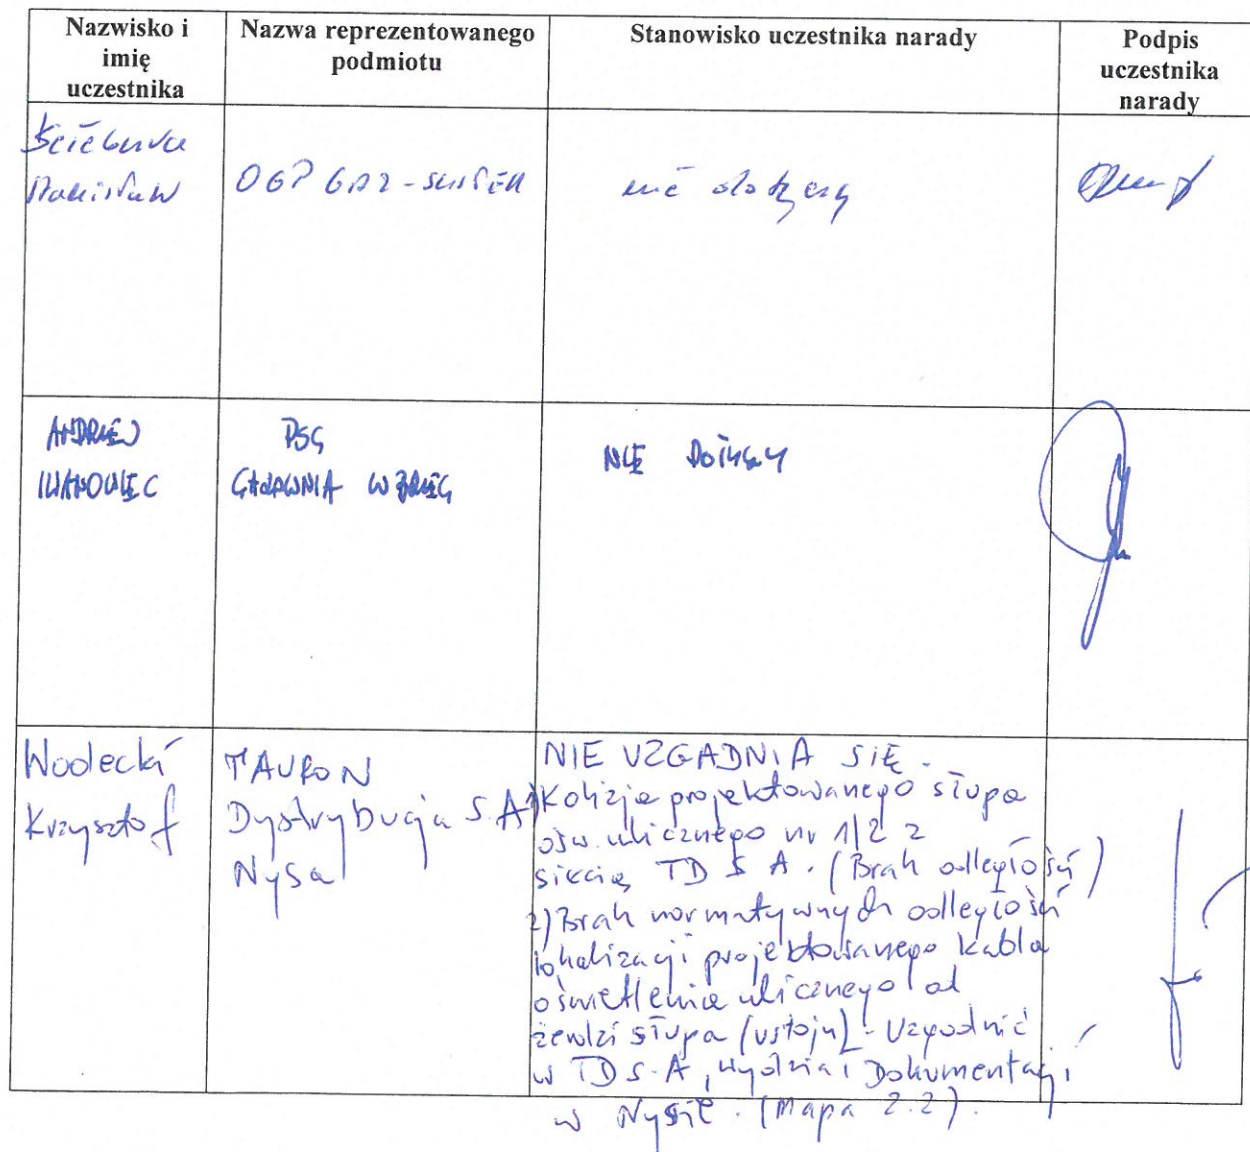 Nazwisko i
imię
uczestnika
Nazwa reprezentowanego
podmiotu
Stanowisko uczestnika narady
Podpis
uczestnika
narady
OGP GAZ-
nie dotyczy
ANDRZEJ
IWANOWIEC
PSG
GAZOWNIA W BRZEG
NIE DOTYCZY
Wodecki
Krzysztof
TAURON
Dystrybucja S.A
Nysa
NIE UZGADNIA SIĘ.
1) Kolizja projektowanego słupa
ośw. ulicznego nr 1/2 z
siecią TD S A. (Brak odległości)
2) Brak normatywnych odległości
lokalizacji projektowanego kabla
oświetlenia ulicznego od
żerdzi słupa (ustoju) - Uzgodnić
w TD S.A, wydział Dokumentacji
w Nysie. (Mapa 2.2).